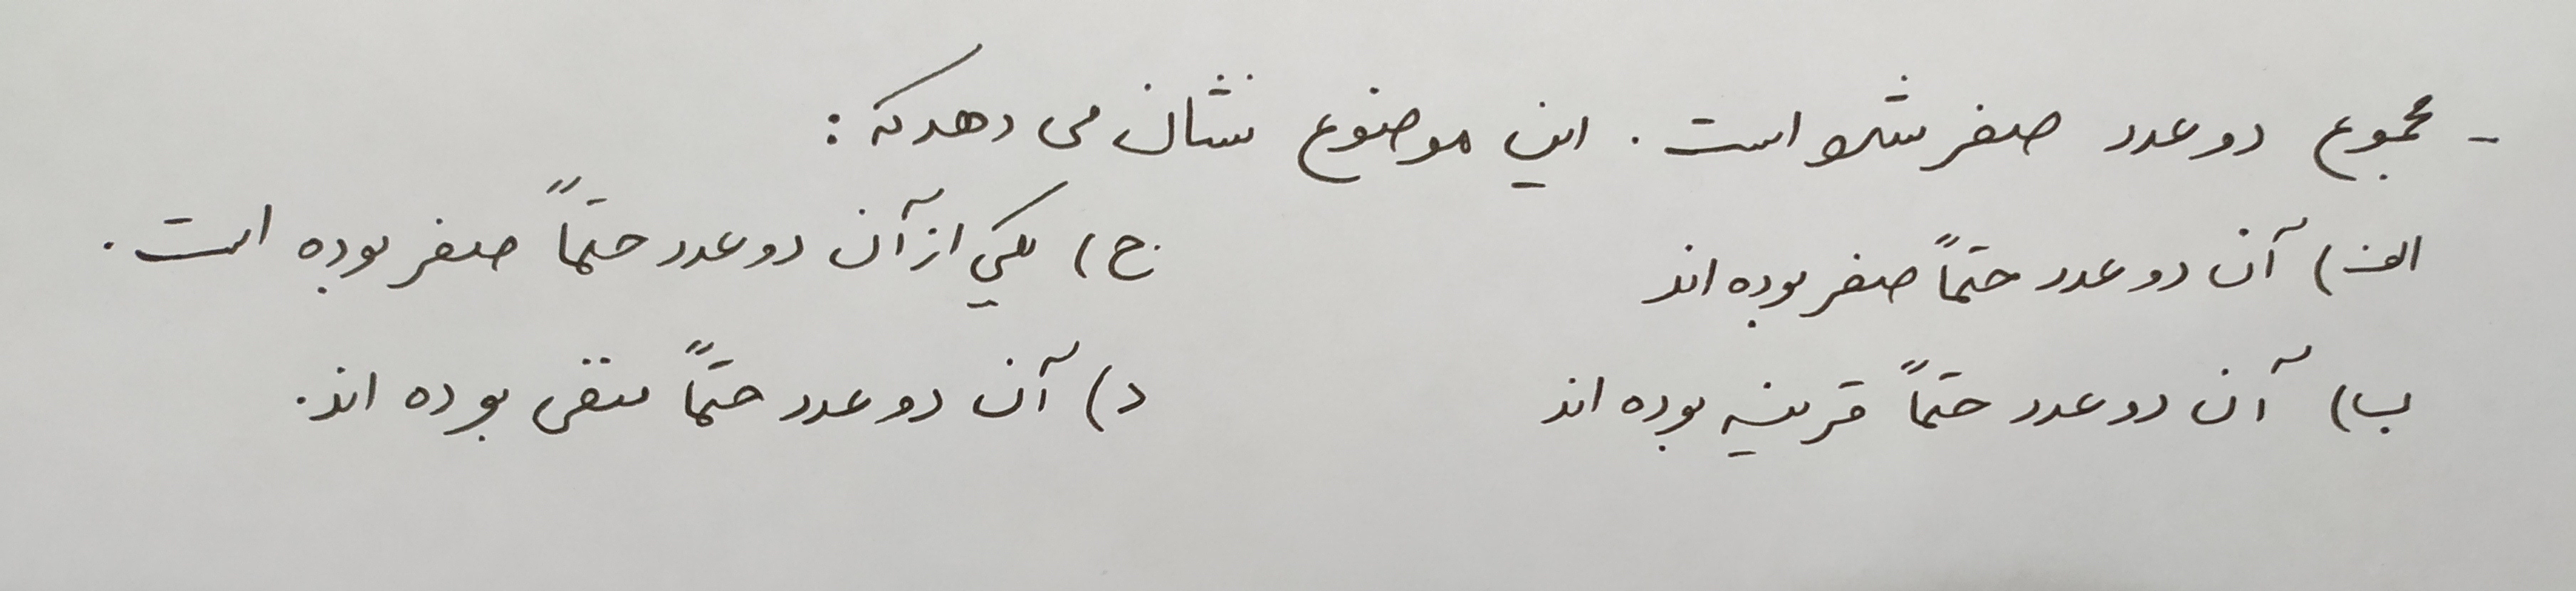 - مجموع دو عدد صفر شده است. این موضوع نشان می دهد که:
الف) آن دو عدد حتماً صفر بوده اند
ج) یکی از آن دو عدد حتماً صفر بوده است.
ب) آن دو عدد حتماً قرینه بوده اند
د) آن دو عدد حتماً منفی بوده اند.